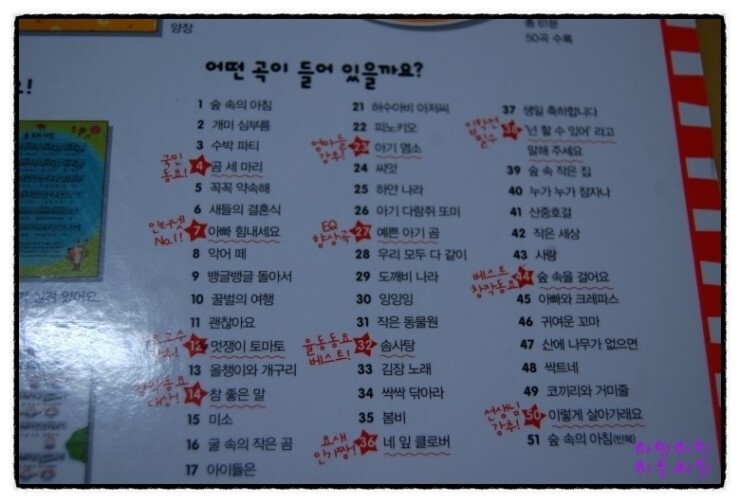 양장
총 61분
50곡 수록
어떤 곡이 들어 있을까요?
1 숲 속의 아침
2 개미 심부름
3 수박 파티
국민 동요! 4 곰 세 마리
5 꼭꼭 약속해
6 새들의 결혼식
인터넷 No.1! 7 아빠 힘내세요
8 악어 떼
9 뱅글뱅글 돌아서
10 꿀벌의 여행
11 괜찮아요
12 멋쟁이 토마토
13 올챙이와 개구리
14 참 좋은 말
15 미소
16 굴 속의 작은 곰
17 아이들은
21 허수아비 아저씨
22 피노키오
엄마들 강추! 23 아기 염소
24 씨앗
25 하얀 나라
26 아기 다람쥐 또미
EQ 향상곡 27 예쁜 아기 곰
28 우리 모두 다 같이
29 도깨비 나라
30 잉잉잉
31 작은 동물원
율동동요 베스트! 32 솜사탕
33 김장 노래
34 싹싹 닦아라
35 봄비
요새 인기짱! 36 네 잎 클로버
37 생일 축하합니다
38 '넌 할 수 있어' 라고
말해 주세요
39 숲 속 작은 집
40 누가 누가 잠자나
41 산중호걸
42 작은 세상
43 사랑
베스트 창작동요 44 숲 속을 걸어요
45 아빠와 크레파스
46 귀여운 꼬마
47 산에 나무가 없으면
48 싹트네
49 코끼리와 거미줄
선생님 강추! 50 이렇게 살아가래요
51 숲 속의 아침(반복)